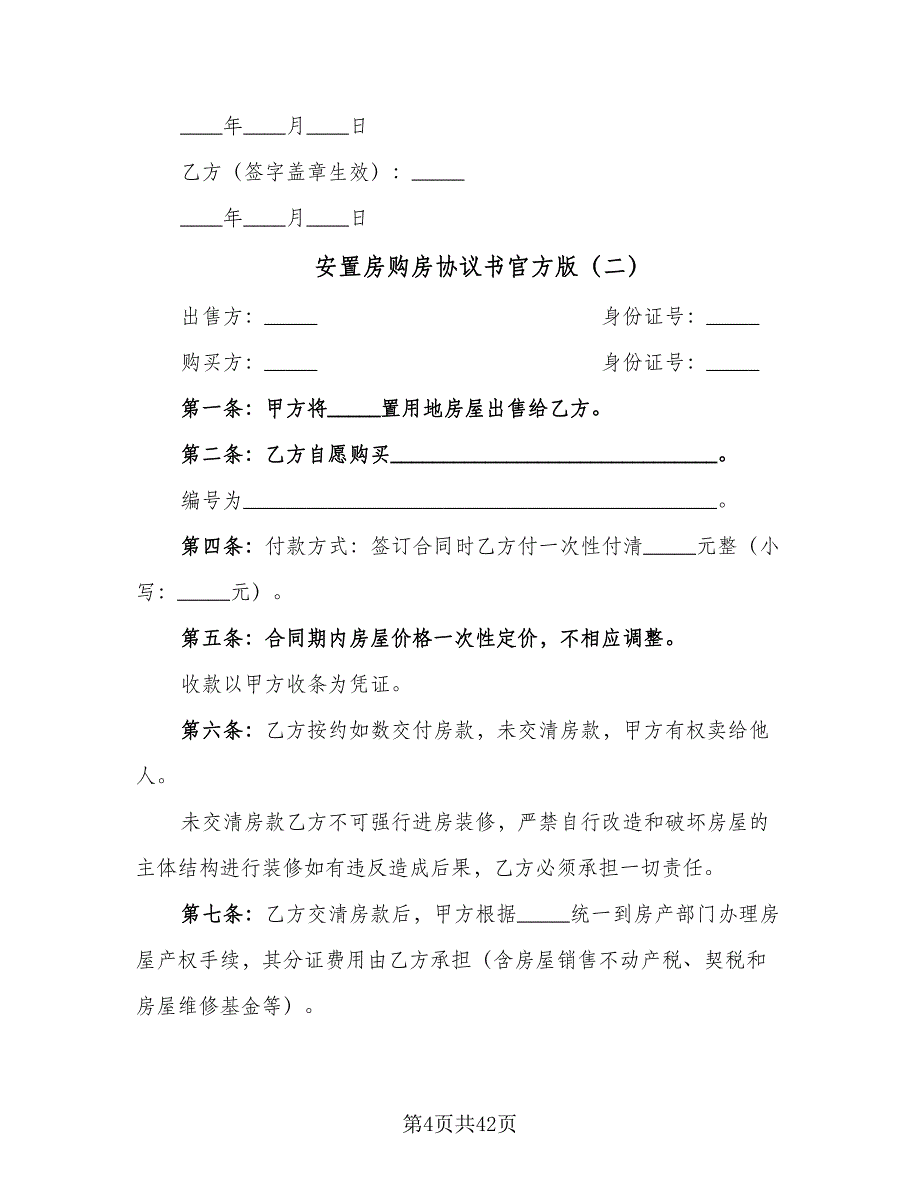 ____年____月____日
乙方（签字盖章生效）：_____
____年____月____日
安置房购房协议书官方版（二）
出售方：_____ 身份证号：_____
购买方：_____ 身份证号：_____
第一条：甲方将_____置用地房屋出售给乙方。
第二条：乙方自愿购买_______________________________。
编号为_____________________________________________。
第四条：付款方式：签订合同时乙方付一次性付清_____元整（小
写：_____元）。
第五条：合同期内房屋价格一次性定价，不相应调整。
收款以甲方收条为凭证。
第六条：乙方按约如数交付房款，未交清房款，甲方有权卖给他
人。
未交清房款乙方不可强行进房装修，严禁自行改造和破坏房屋的
主体结构进行装修如有违反造成后果，乙方必须承担一切责任。
第七条：乙方交清房款后，甲方根据_____统一到房产部门办理房
屋产权手续，其分证费用由乙方承担（含房屋销售不动产税、契税和
房屋维修基金等）。
第4页共42页